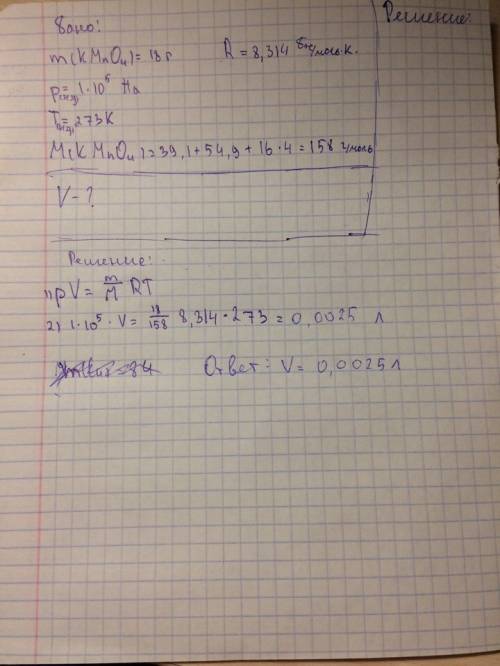 Дано:
Решение:
m(KMnO₄) = 18 г R = 8,314 Дж/моль·К.
p(н.у) = 1·10⁵ Па
T(н.у) = 273К
M(KMnO₄) = 39,1 + 54,9 + 16·4 = 158 г/моль
V - ?
Решение:
1) pV = m/M RT
2) 1·10⁵ · V = 18/158 8,314 · 273 = 0,0025 л
Ответ: V = 0,0025 л